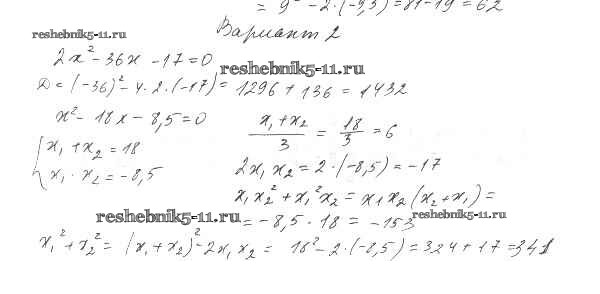 = 9² - 2·(-9,5) = 81 - 19 = 62
reshebnik5-11.ru
Вариант 2
2x² - 36x - 17 = 0
reshebnik5-11.ru
D = (-36)² - 4·2·(-17) = 1296 + 136 = 1432
x² - 18x - 8,5 = 0
(x₁ + x₂)/3 = 18/3 = 6
{ x₁ + x₂ = 18
x₁ · x₂ = -8,5
2x₁x₂ = 2·(-8,5) = -17
x₁x₂² + x₁²x₂ = x₁x₂(x₂ + x₁) =
reshebnik5-11.ru
= -8,5 · 18 = -153
reshebnik5-11.ru
x₁² + x₂² = (x₁ + x₂)² - 2x₁x₂ = 18² - 2·(-8,5) = 324 + 17 = 341